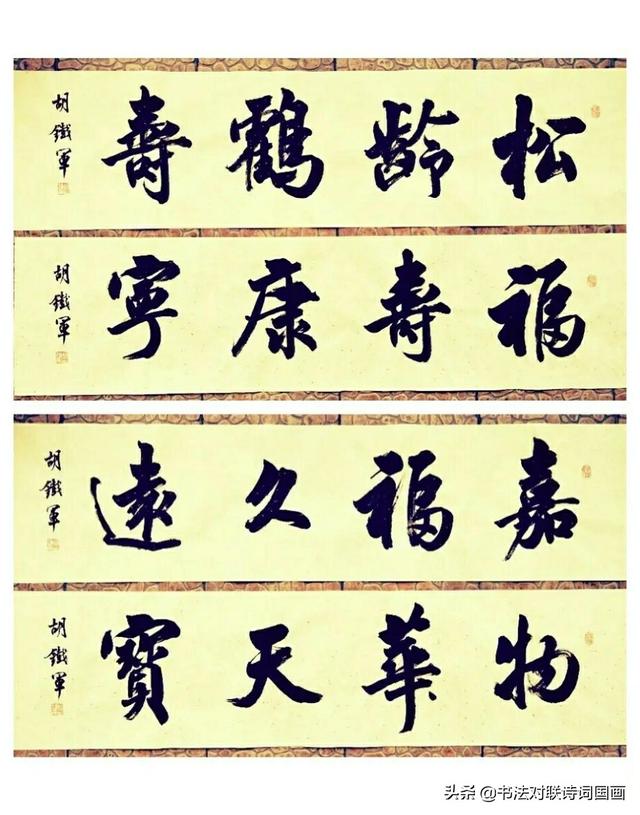 松齡鶴壽
胡鐵軍
福壽康寧
胡鐵軍
嘉福久遠
胡鐵軍
物華天寶
胡鐵軍
头条 @书法对联诗词国画